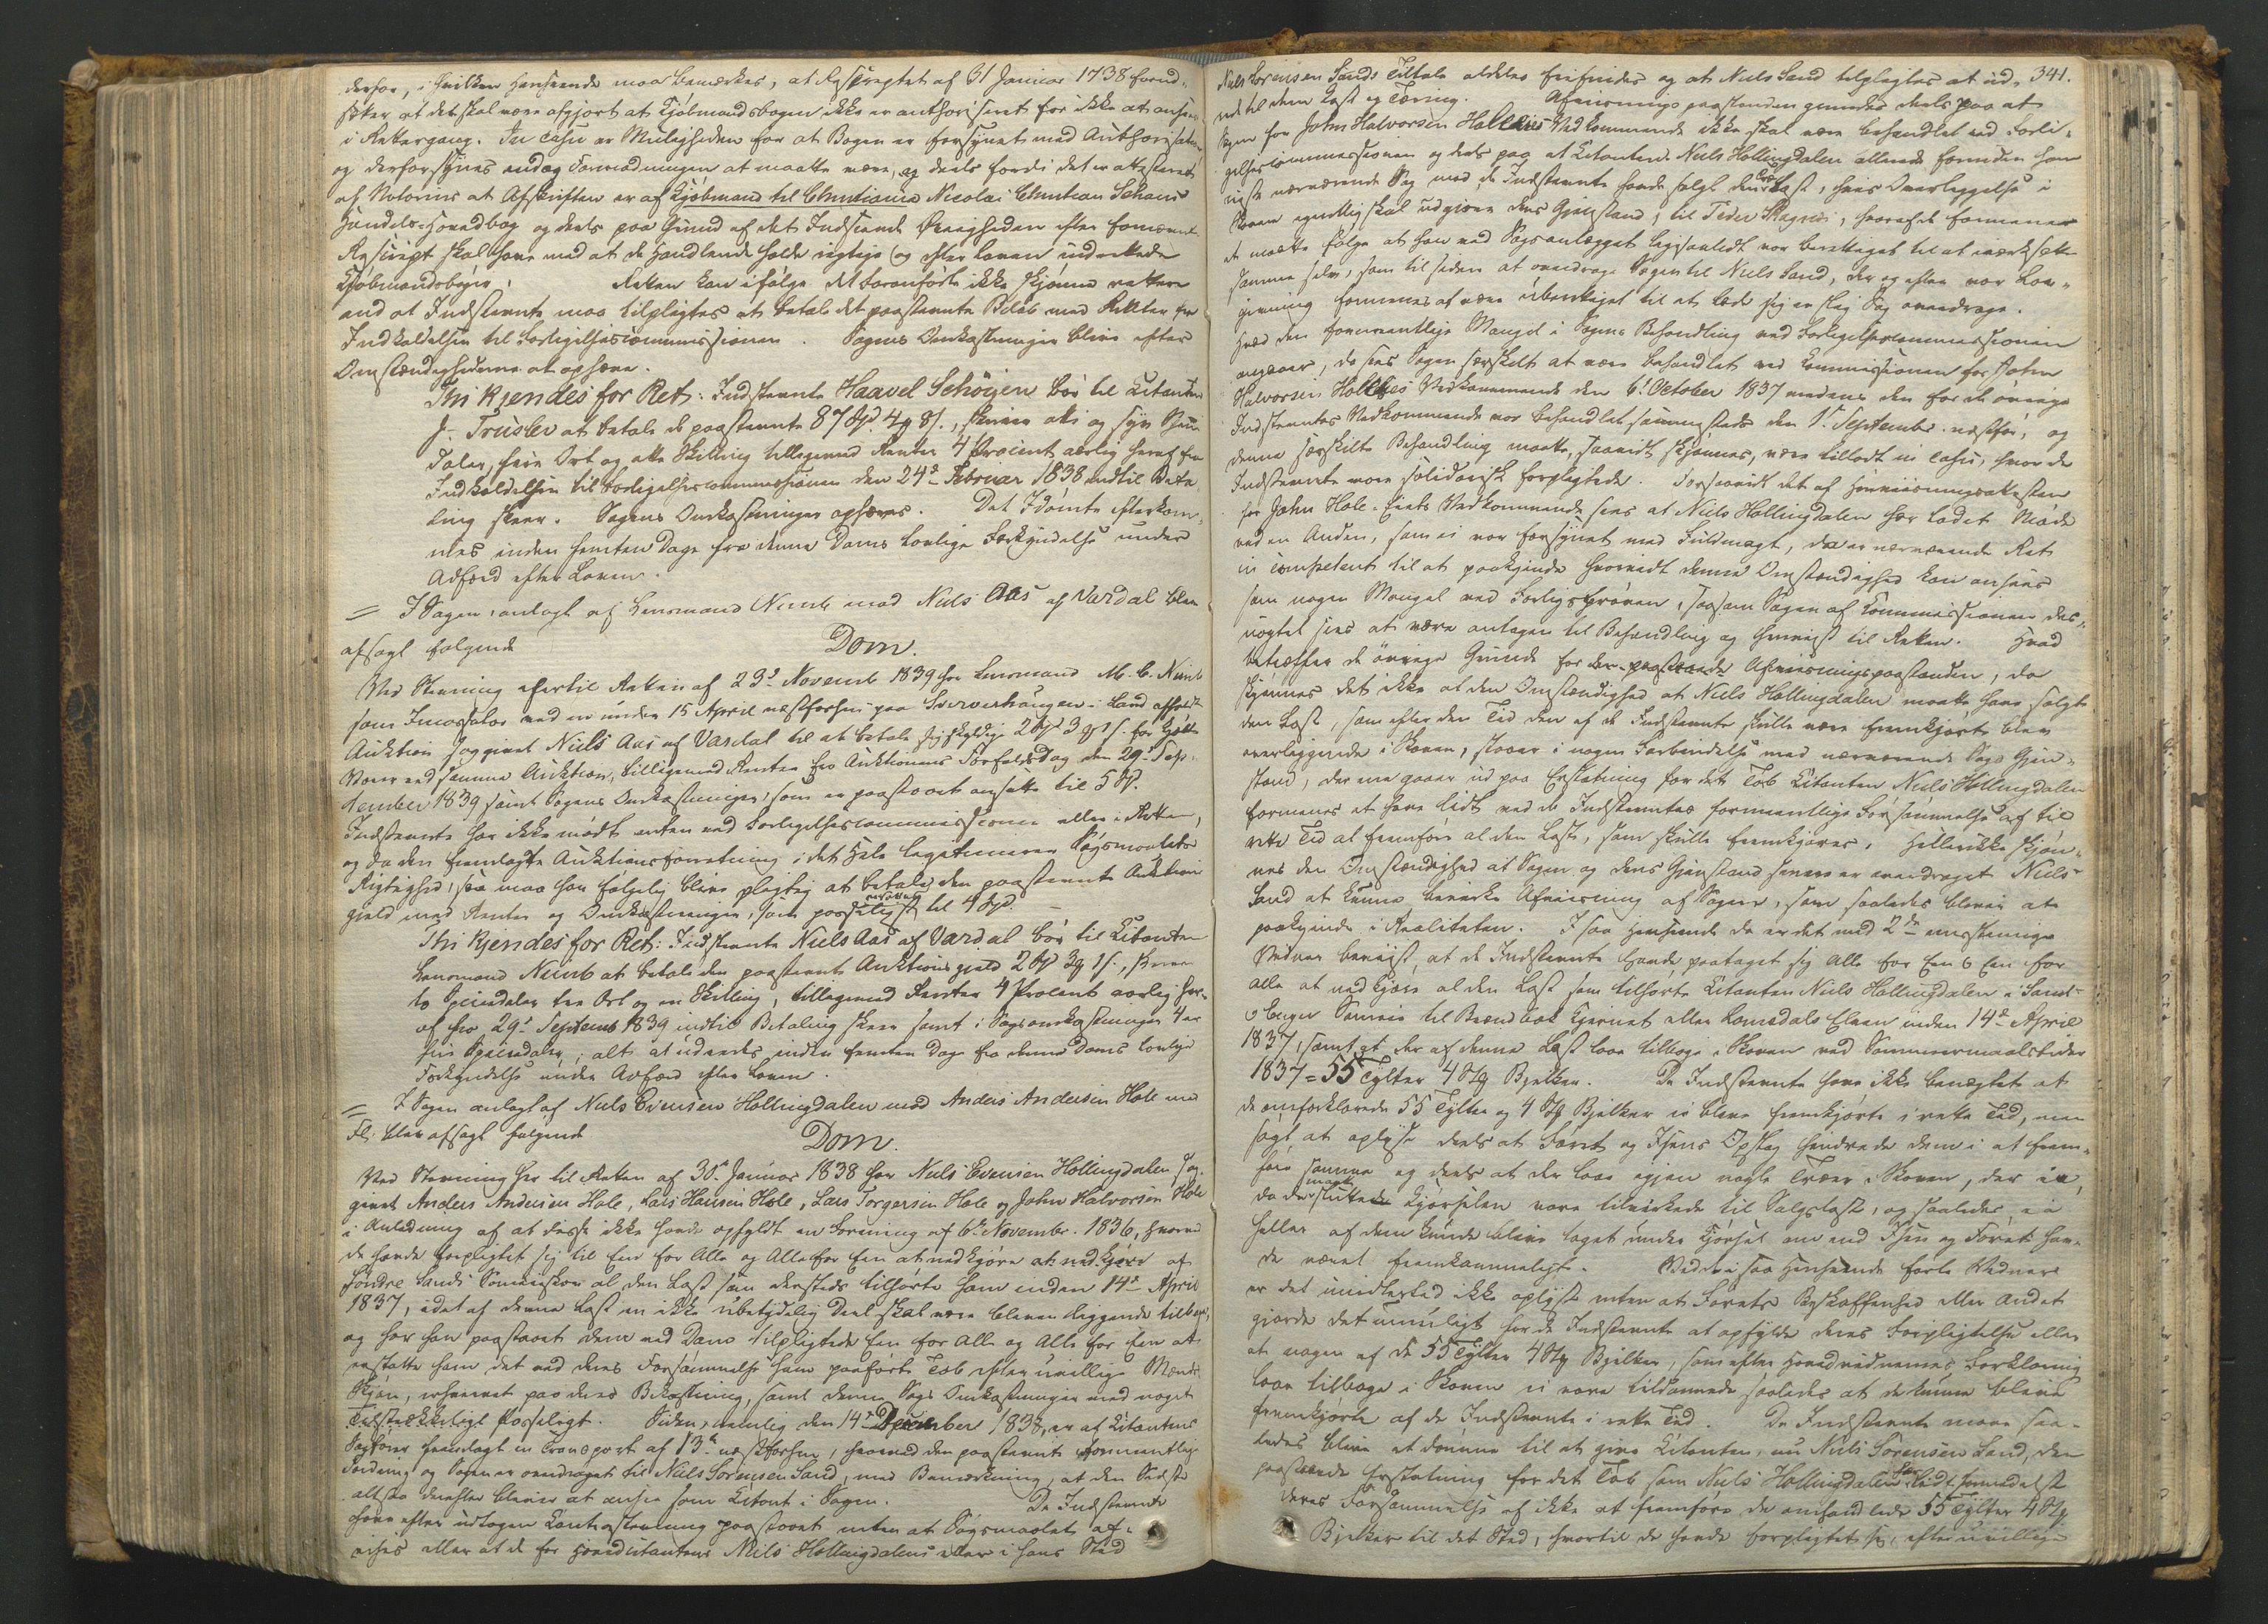 derfor, i hvilken Henseende maa bemærkes, at Reskriptet af 31 Januar 1738 forud-
sætter at det skal være afgjort at Kjøbmandsbogen ikke er authoriseret for ikke at ansees
i Rettergang. In casu er Muligheden for at Bogen er forsynet med Authorisation
og derfor synes endog Formodningen at maatte være, og deels fordi det er attesteret
af Notarius at Afskriften er af Kjøbmand til Christiania Nicolai Christian Schans
Handels-Hovedbog og deels paa Grund af det Indseende Øvrigheden efter fornævnte
Reskript skal have med at de Handlende holde rigtige (og efter Loven indrettede
Kjøbmandsbøger. Retten kan ifølge det Foranførte ikke skjønne rettere
end at Indstevnte maa tilpligtes at betale det paastevnte Beløb med Renter fra
Indkaldelsen til Forligelsescommissionen. Sagens Omkostninger blive efter
Omstændighederne at ophæve.
Thi kjendes for Ret: Indstevnte Haavel Schöyen bör til Citanten
J. Trusler at betale de paastevnte 87 Spd. 4 8 s., skriver otte og syv Specie-
daler, fire Ort og otte Skilling tilligemed Renter 4 Procent aarlig heraf fra
Indkaldelsen til Forligelsescommissionen den 24de Februar 1838 indtil Beta-
ling skeer. Sagens Omkostninger ophæves. Det Idömte efterkom-
mes inden femten Dage fra denne Doms lovlige Forkyndelse under
Adfærd efter Loven.
= I Sagen, anlagt af Lensmand Nimb mod Niels Aas af Vardal blev
afsagt følgende
Dom.
Ved Stevning hertil Retten af 23de Novemb 1839 har Lensmand M. C. Nimb
som Incassator ved en under 15 April næstforhen paa Sververhaugen i Land afholdt
Auktion sagsøgt Niels Aas af Vardal til at betale sig skyldige 2 Spd 3 1 s. for kjøbte
Varer ved samme Auktion, tilligemed Renter fra Auktionens Forfaldsdag den 29de Sep-
tember 1839 samt Sagens Omkostninger, som er paastaaet ansatte til 5 Spd.
Indstevnte har ikke mødt enten ved Forligelsescommissionen eller i Retten,
og da den fremlagte Auktionsforretning i det Hele legitimerer Søgsmaalets
Rigtighed, saa maa han følgelig blive pligtig at betale den paastevnte Auktions-
gjæld med Renter og Omkostninger, som passeligst ansættes til 4 Spd.
Thi kjendes for Ret: Indstevnte Niels Aas af Vardal bör til Citanten
Lensmand Nimb at betale den paastevnte Auktionsgjæld 2 Spd 3 1 s., skriver
to Speciedaler tre Ort og en Skilling, tilligemed Renter 4 Procent aarlig her-
af fra 29de Septemb 1839 indtil Betaling skeer samt i Sagsomkostninger 4 er
fire Speciedaler; alt at udredes inden femten Dage fra denne Doms lovlige
Forkyndelse under Adfærd efter Loven.
= I Sagen anlagt af Niels Evensen Hollingdalen mod Anders Andersen Hole med
Fl: blev afsagt følgende
Dom.
Ved Stevning her til Retten af 30te Januar 1838 har Niels Evensen Hollingdalen sag-
givet Anders Andersen Hole, Lars Hansen Hole, Lars Torgersen Hole og John Halvorsen Hole
i Anledning af at disse ikke havde opfyldt en Forening af 6te Novembr. 1836, hvorved
de havde forpligtet sig til Een for Alle og Alle for Een at nedkjøre at nedkjøre af
Søndre Sands Sameieskov al den Last som dersteds tilhørte ham inden 14de April
1837, idet af denne Last en ikke ubetydelig Deel skal være bleven liggende tilbage,
og har han paastaaet dem ved Dom tilpligtede Een for Alle og Alle for Een at
erstatte ham det ved deres Forsømmelse ham paaførte Tab efter uvillige Mænds
Skjøn, erhvervet paa deres Bekostning, samt denne Sags Omkostninger med noget
Tilstrækkeligt Passeligt. Siden, nemlig den 14de December 1838, er af Citantens
Sagfører fremlagt en Transport af 13de næstforhen, hvorved den paastevnte formentlige
Fordring og Sagen er overdraget til Niels Sørensen Sand, med Bemærkning, at den Sidste
altsaa derefter bliver at ansee som Citant i Sagen. De Indstevnte
have efter udtagen Contrastevning paastaaet enten at Søgsmaalet af-
vises eller at de for Hovedcitantens Niels Hollingdalens eller i hans Sted
341.
Niels Sørensen Sands Tiltale aldeles frifindes og at Niels Sand tilpligtes at ud-
rede til dem Kost og Tæring. Afviisningspaastanden grundes deels paa at
Sagen for John Halvorsen Holes Vedkommende ikke skal være behandlet ved Forli-
gelsescommissionen og deels paa at Citanten Niels Hollingdalen allerede forinden han
reiste nærværende Sag mod de Indstevnte havde solgt den Last, hvis Overliggelse i
Skoven egentlig skal udgjøre dens Gjenstand, til Peder Skagnes, hvoraf de formener
det maatte følge at han ved Sagsanlægget ligesaalidt var berettiget til at iværksætte
samme selv, som til siden at overdrage Sagen til Niels Sand, der og efter vor Lov-
givning formenes at være uberettiget til at lade sig en slig Sag overdrage.
Hvad den formeentlige Mangel i Sagens Behandling ved Forligelsescommissionen
angaaer, da sees Sagen særskilt at være behandlet ved Commissionen for John
Halvorsen Holes Vedkommende den 6te October 1837 medens den for de øvrige
Indstevntes Vedkommende var behandlet sammesteds den 1te September næstfør, og
denne særskilte Behandling maatte, saavidt skjønnes, være tilladt in casu, hvor de
Indstevnte vare solidarisk forpligtede. Forsaavidt det af Henviisningsattesten
for John Hole-Eiets Vedkommende sees at Niels Hollingdalen har ladet Møde
ved en Anden, som ei var forsynet med Fuldmagt, da er nærværende Ret
ei competent til at paakjende hvorvidt denne Omstændighed kan ansees
som nogen Mangel ved Forligsprøven, saasom Sagen af Commissionen des-
uagtet sees at være antagen til Behandling og henviist til Retten. Hvad
betræffer de øvrige Grunde for den paastaaede Afviisningspaastanden, da
skjønnes det ikke at den Omstændighed at Niels Hollingdalen maatte have solgt
den Last, som efter den Tid den af de Indstevnte skulle være fremkjørt blev
overliggende i Skoven, staaer i nogen Forbindelse med nærværende Sags Gjen-
stand, der nu gaaer ud paa Erstatning for det Tab Citanten Niels Hollingdalen
formenes at have lidt ved de Indstevntes formeentlige Forsømmelse af til
rette Tid at fremføre al den Last, som skulle fremkjøres. Hellerikke skjøn-
nes den Omstændighed at Sagen og dens Gjenstand senere er overdraget Niels
Sand at kunne bevirke Afviisning af Sagen, som saaledes bliver at
paakjende i Realiteten. I saa Henseende da er det med 2de eensstemmige
Vidner beviist, at de Indstevnte havde paataget sig Alle for Een & Een for
Alle at nedkjøre al den Last som tilhørte Citanten Niels Hollingdalen i Sand
Sameie til Brændbæk Tjernet eller Romedals Elven inden 14de April
1837, samt at der af denne Last laae tilbage i Skoven ved Sommermaalstider
1837 = 55 Tylter 4 Stk Bjelker. De Indstevnte have ikke benægtet at
de omforklarede 55 Tylter og 4 Stk Bjelker ei bleve fremkjørte i rette Tid, men
søgt at oplyse deels at Føret og Isens Opslag hindrede dem i at frem-
føre samme og deels at der laae igjen nogle Træer i Skoven, der ei,
da de sluttede Kjørselen vare tilvirkede til Salgslast, og saaledes ei
heller af dem kunde blive taget under Kjørsel om end Isen og Føret hav-
de været fremkommeligt. Ved de i saa Henseende førte Vidner
er det imidlertid ikke oplyst enten at Førets Beskaffenhed eller Andet
gjorde det umuligt for de Indstevnte at opfylde deres Forpligtelse eller
at nogen af de 55 Tylter 4 Stk Bjelker, som efter Hovedvidnernes Forklaring
laae tilbage i Skoven ei vare tildannede saaledes at de kunne blive
fremkjørte af de Indstevnte i rette Tid. De Indstevnte maae saa-
ledes blive at dømme til at give Citanten, nu Niels Sørensen Sand, den
paastaaede Erstatning for det Tab som Niels Hollingdalen har lidt formedelst
deres Forsømmelse af ikke at fremføre de omhandlede 55 Tylter 4 Stk
Bjelker til det Sted, hvortil de havde forpligtet sig, efter uvillige